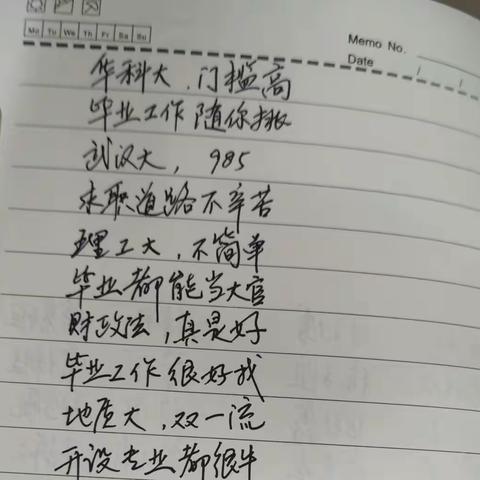 Mo Tu We Th Fr Sa Su
Memo No.
Date / /
华科大,门槛高
毕业工作随你挑
武汉大,985
求职道路不辛苦
理工大,不简单
毕业都能当大官
财政法,真是好
毕业工作很好找
地质大,双一流
开设专业都很牛